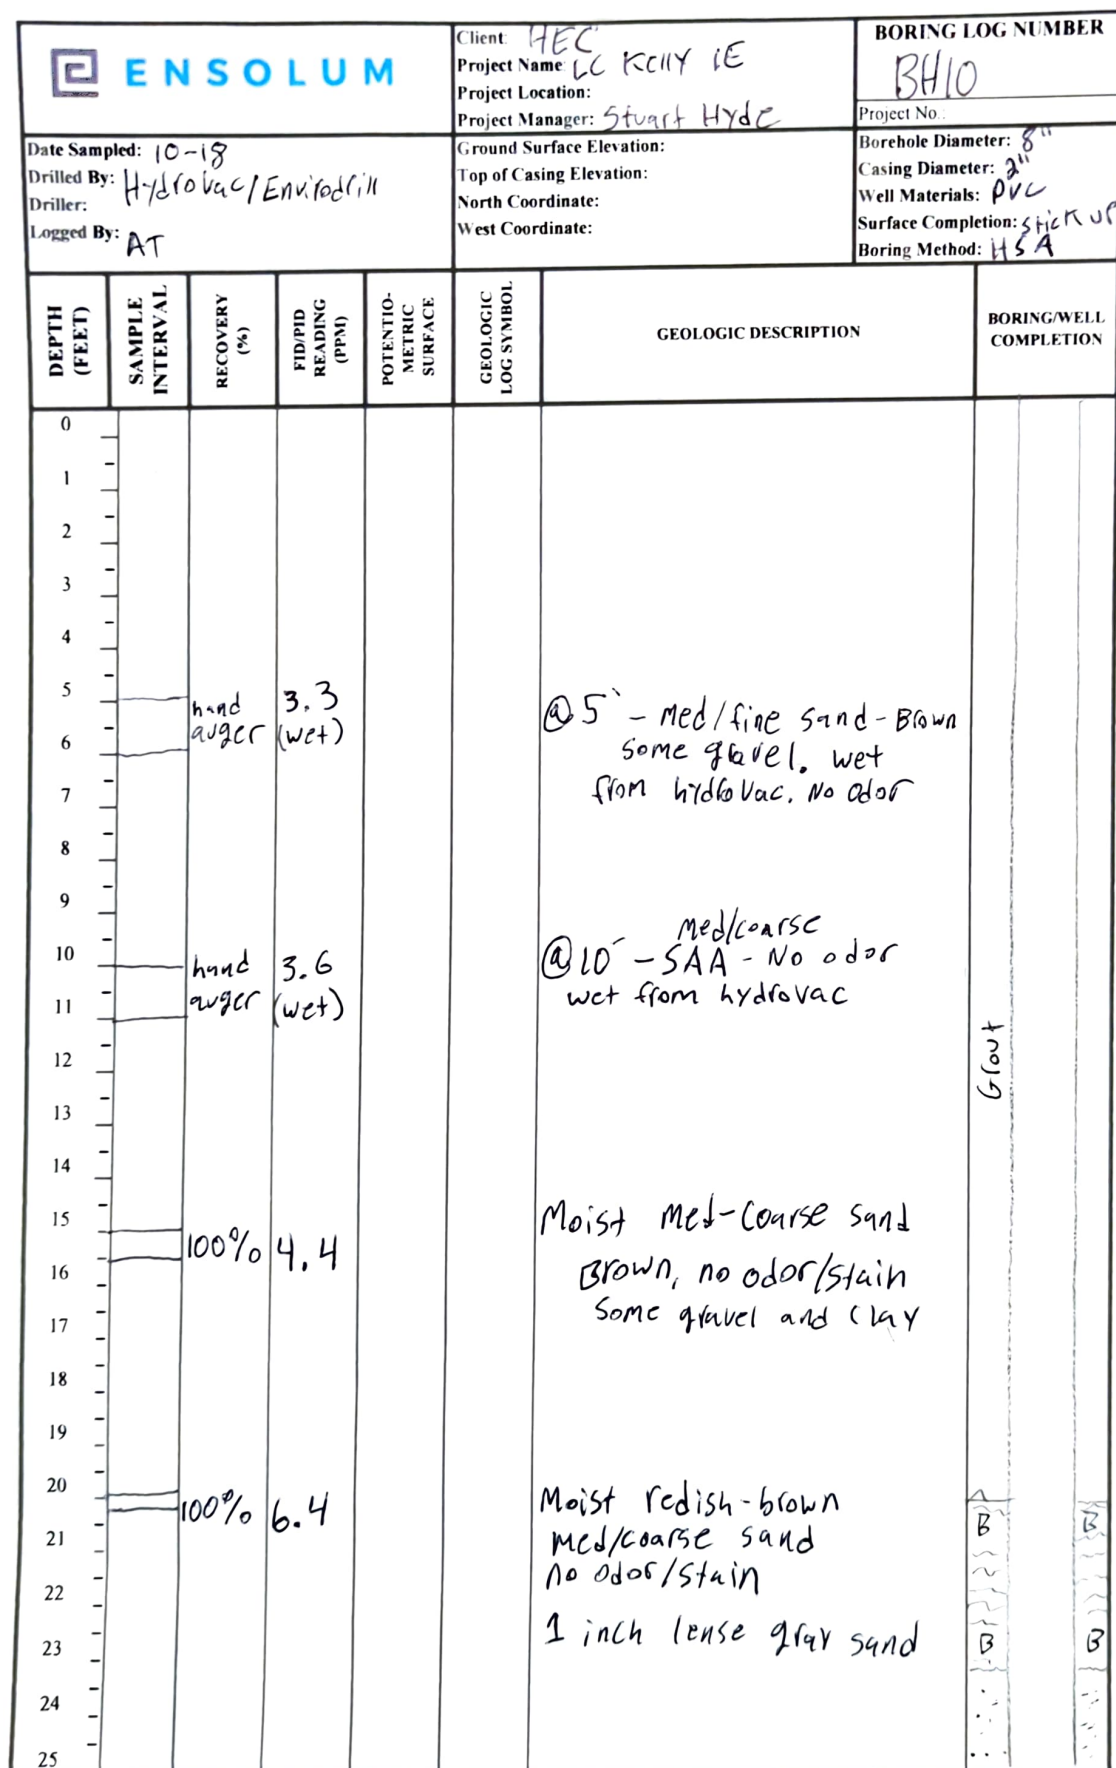 ENSOLUM
Client: HEC
Project Name: LC Kelly 1E
Project Location:
Project Manager: Stuart Hyde
BORING LOG NUMBER
BH10
Project No.:
Date Sampled: 10-18
Drilled By: Hydrovac/Envirodrill
Driller:
Logged By: AT
Ground Surface Elevation:
Top of Casing Elevation:
North Coordinate:
West Coordinate:
Borehole Diameter: 8"
Casing Diameter: 2"
Well Materials: PVC
Surface Completion: stick up
Boring Method: HSA
DEPTH (FEET)
SAMPLE INTERVAL
RECOVERY (%)
FID/PID READING (PPM)
POTENTIO-METRIC SURFACE
GEOLOGIC LOG SYMBOL
GEOLOGIC DESCRIPTION
BORING/WELL COMPLETION
0
1
2
3
4
5
hand 3.3 @ 5' - med/fine sand - Brown
auger (wet) some gravel. wet
6
from hydrovac. No odor
7
8
9
med/coarse
10
hand 3.6 @ 10' - SAA - No odor
auger (wet) wet from hydrovac
11
Grout
12
13
14
15
Moist med-coarse sand
100% 4.4
16
Brown, no odor/stain
some gravel and clay
17
18
19
20
Moist redish-brown
100% 6.4
B B
21
med/coarse sand
no odor/stain
22
1 inch lense gray sand
23
B B
24
25